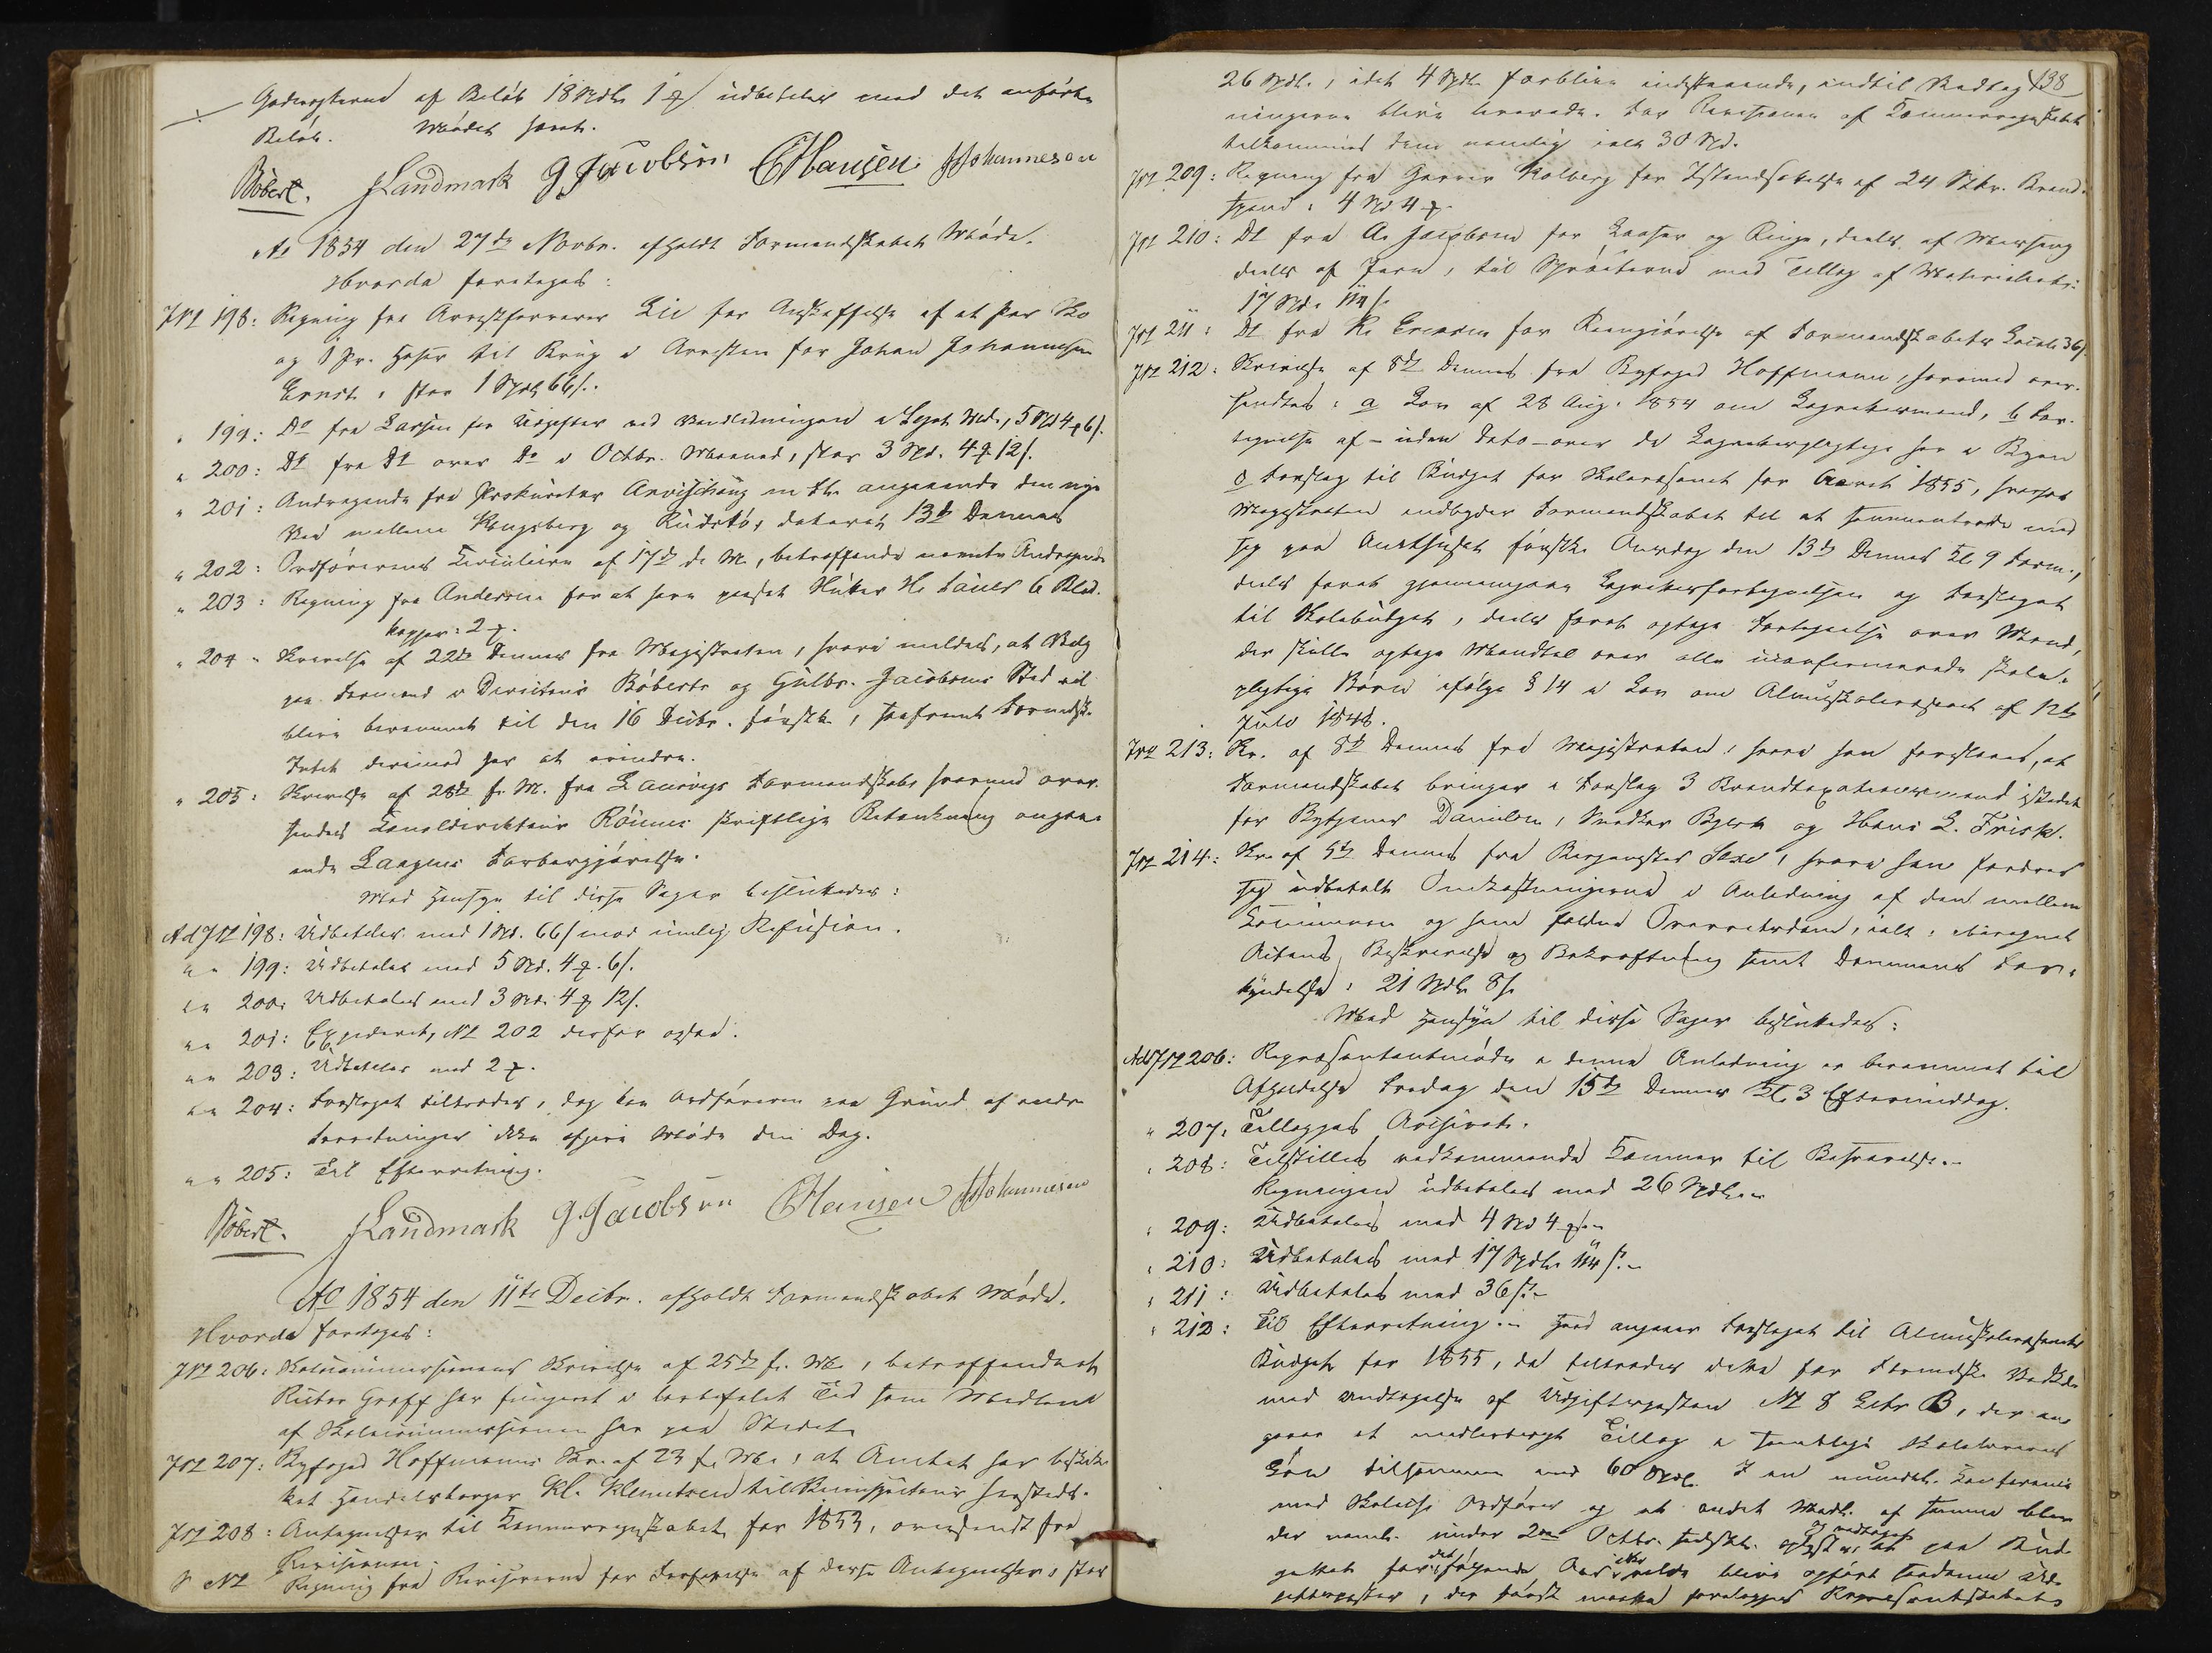 Godway af Beløb 18 Spdlr 1 ƶ udbetales med det anførte
Beløb. Mødet hævet.
Bóbert. JLandmark G Jacobsen CHansen JJohannesen
Ao 1854 den 27de Novbr. afholdt Formandskabet Møde.
Hvorda foretoges:
JN 198: Regning fra Arrestforvarer Lie for Anskaffelse af et Par Sko
og 1 Pr. Hoser til Brug i Arresten for Johan Johannesen
Ernst, stor 1 Spdlr 66 s.
" 199: Do fra Larsen for Udgifter ved Vandledningen i Sept Md., 5 Spd 4 ƶ 6 s.
" 200: Do fra Do over Do i Octbr. Maaned, stor 3 Spd. 4 ƶ 12 s.
" 201: Andragende fra Prokurator Arvischoug m Fl. angaaende den nye
Vei mellem Kongsberg og Rudstø, dateret 13de Dennes
" 202: Ordførerens Circulaire af 17de d. M., betræffende nævnte Andragende
" 203: Regning fra Andersen for at have paasat Huker H. Faues 6 Blod-
kopper: 2 ƶ.
" 204 " Skrivelse af 22de Dennes fra Magistraten, hvori meldes, at Valg
paa Formænd i Directeur Bóberts og Gulbr. Jacobsens Sted vil
blive berammet til den 16 Decbr. førstk., saafremt Formdsk.
Intet derimod har at erindre.
" 205: Skrivelse af 28de f. M. fra Laurvigs Formandskab hvormed over-
sendes Canaldirekteur Röyens skriftlige Betænkning angaa-
ende Laagens Farbargjørelse.
Med Hensyn til disse Sager besluttedes:
Ad JN 198: Udbetales med 1 Spd. 66 s mod mulig Refusion.
" " 199: Udbetales med 5 Spd. 4 ƶ. 6 s.
" " 200: Udbetales med 3 Spd. 4 ƶ 12 s.
" " 201: Expederet, N 202 derfor ogsaa.
" " 203: Udbetales med 2 ƶ.
" " 204: Forslaget tiltrædes, dog kan Ordføreren paa Grund af andre
Forretninger ikke afgive Møde den Dag.
" " 205: Til Efterretning.
Bóbert. JLandmark G. Jacobsen CHansen JJohannesen
Ao 1854 den 11te Decbr. afholdt Formandskabet Møde.
Hvorda foretoges:
JN 206: Skolecommissionens Skrivelse af 25de f. M., betræffende at
Ritter Graff har fungeret i lovbefalet Tid som Medlem
af Skolecommissionen her paa Stedet.
JN 207: Byfoged Hoffmanns Skr. af 23 f. M., at Amtet har beskik-
ket Handelsborger Kl. Klemetsen til Veiinspecteur herstedet.
JN 208: Antegnelser til Kæmnerregnskabet for 1853, oversendt fra
Revisionen.
S N Regning fra Revisorerne for Forfattelse af disse Antegnelser, stor
138
26 Spdl., idet 4 Spdl. forblive indestaaende, indtil Vedtag-
ningerne blive leverede. For Revisionen af Kæmnerregnskabet
tilkommes dem nemlig ialt 30 Spd.
JN 209: Regning fra Garver Kolberg for Istandsættelse af 24 Stkr. Brand-
spand: 4 Spd 4 ƶ.
JN 210: Do fra A. Jacobsen for Laaser og Ringe, deels af Messing
deels af Jern, til Sprøiterne med Tillæg af Materialier:
17 Spd. 114 s.
JN 211: Do fra K. Ericsen for Reengjørelse af Formandskabets Locale 36 s.
JN 212: Skrivelse af 8de Dennes fra Byfoged Hoffmann, hvormed over-
sendtes: a Lov af 28 Aug. 1854 om Lagrettesmænd, b For-
tegnelse af – uden Dato – over de Lagrettespligtige her i Byen
c Forslag til Budget for Skolevæsenet for Aaret 1855, hvorhos
Magistraten indbyder Formandskabet til at sammentræde med
sig paa Raadhuset førstk. Onsdag den 13de Dennes Kl. 9 Form.,
deels forat gjennemgaae Lagrettesfortegnelsen og Forslaget
til Skolebudget, deels forat optage Fortegnelse over Mænd,
der skulle optage Mandtal over alle uconfirmerede skole-
pligtige Børn ifølge § 14 i Lov om Almueskolevæsenet af 12te
Juli 1848.
JN 213: Skr. af 8de Dennes fra Magistraten, hvori han foreslaaer, at
Formandskabet bringer i Forslag 3 Brandtaxationsmænd istedet
for Rytgener Danielsen, Snedker Bjerk og Hans L. Frisk.
JN 214: Skr. af 5te Dennes fra Bergmester Sexe, hvori han fordrer
sig udbetalt Omkostningerne i Anledning af den mellem
Communen og ham faldne Overretsdom, ialt, iberegnet
Actens Beskrivelse og Bekræftning samt Dommens For-
kyndelse: 21 Spdlr 8 s.
Med Hensyn til disse Sager besluttedes:
Ad JN 206: Repræsentantmøde i denne Anledning er berammet til
Afholdelse Fredag den 15de Dennes Kl. 3 Eftermiddag.
" 207: Tillægges Archivet.
" 208: Tilstilles vedkommende Kæmner til Besvarelse.–
Regningen udbetales med 26 Spdlr.–
" 209: Udbetales med 4 Spd 4 ƶ.–
" 210: Udbetales med 17 Spdlr 114 s.–
" 211: Udbetales med 36 s.–
" 212: Til Efterretning.– Hvad angaaer Forslaget til Almueskolevæsenets
Budget for 1855, da tiltrædes dette for Formdsk. Vedk.
med Undtagelse af Udgiftsposten N 8 Litr B, der an-
gaaer et midlertidigt Tillæg i samtlige Skolelæreres
Løn tilsammen med 60 Spdl. I en mundtl. Conference
med Skolens Ordfører og et andet Medl. af samme blev
der nemlig under 2den Octbr. sidstl. oplyst og vedtaget at der paa Bud-
gettet for det følgende Aar ikke vilde blive opført saadanne Ud-
giftsposter, der først maatte forelægges Repræsentskabets